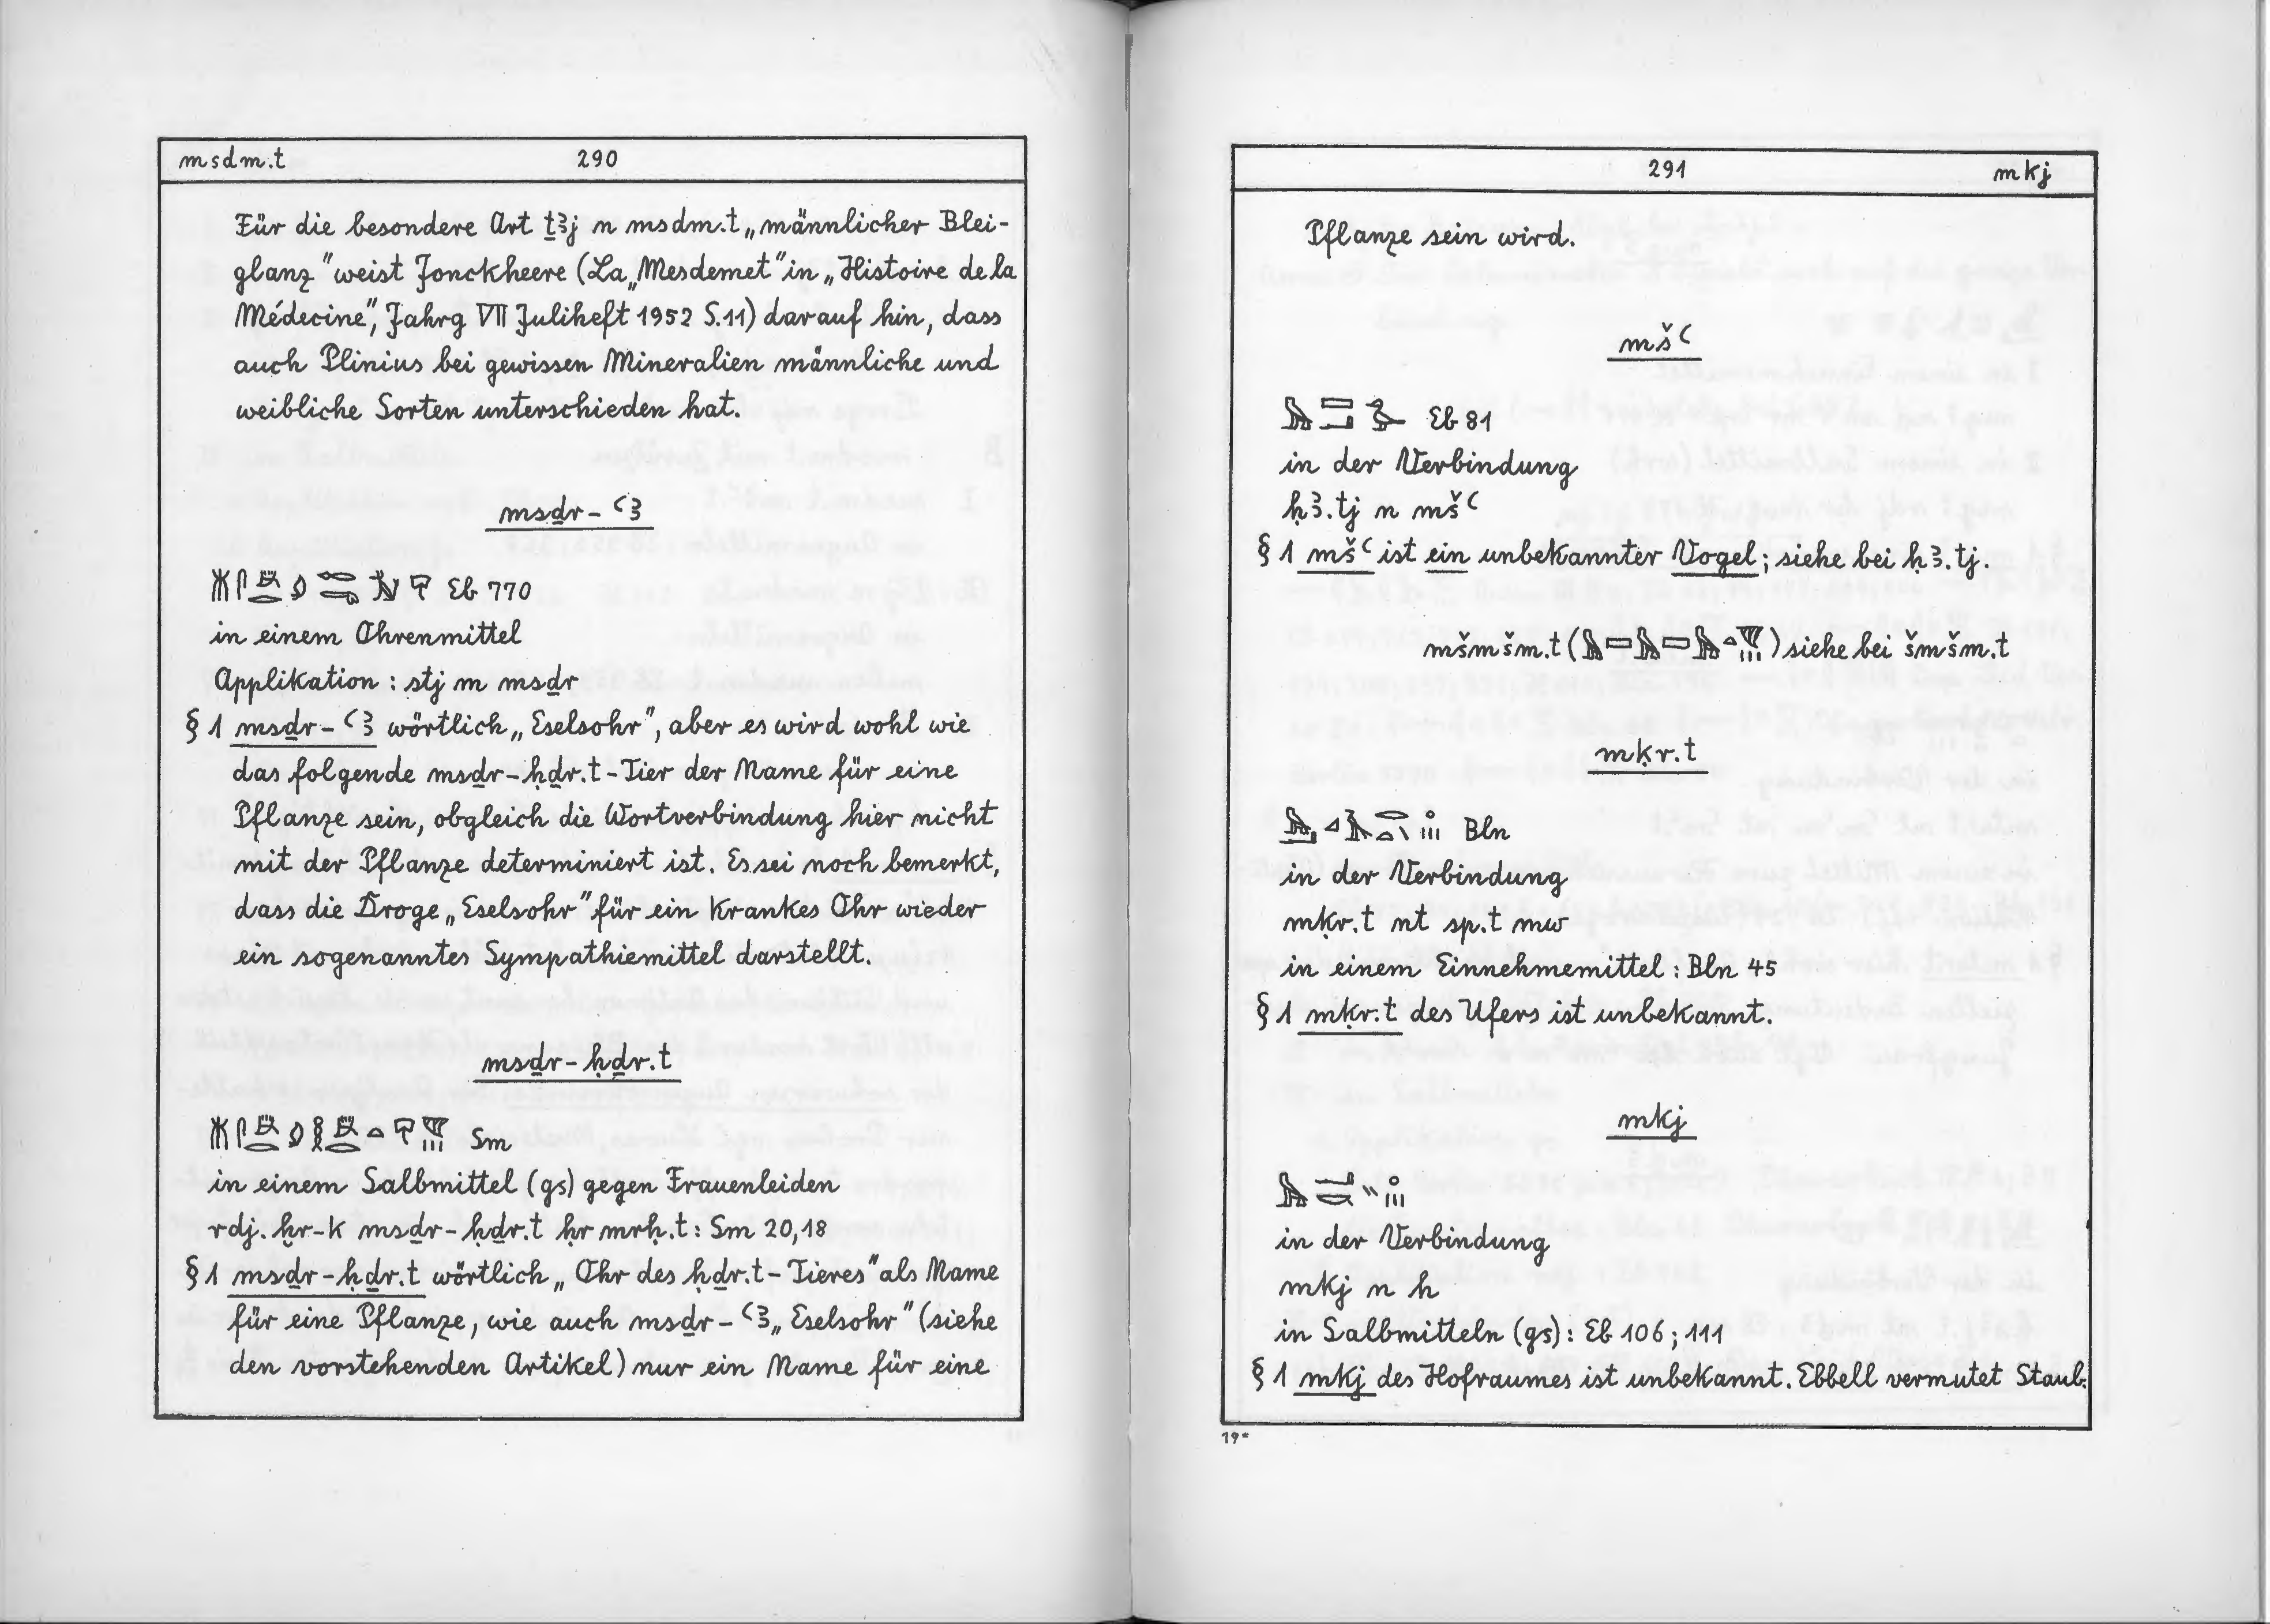 msdm.t 290
Für die besondere Art ṯꜣj n msdm.t „männlicher Blei-
glanz" weist Jonckheere (La „Mesdemet" in „Histoire de la
Médecine", Jahrg VII Juliheft 1952 S.11) darauf hin, dass
auch Plinius bei gewissen Mineralien männliche und
weibliche Sorten unterschieden hat.
msḏr-ꜥꜣ
Eb 770
in einem Ohrenmittel
Applikation : stj m msḏr
§ 1 msḏr-ꜥꜣ wörtlich „Eselsohr", aber es wird wohl wie
das folgende msḏr-ḥḏr.t-Tier der Name für eine
Pflanze sein, obgleich die Wortverbindung hier nicht
mit der Pflanze determiniert ist. Es sei noch bemerkt,
dass die Droge „Eselsohr" für ein krankes Ohr wieder
ein sogenanntes Sympathiemittel darstellt.
msḏr-ḥḏr.t
Sm
in einem Salbmittel (gs) gegen Frauenleiden
rdj.ḫr-k msḏr-ḥḏr.t ḥr mrḥ.t: Sm 20,18
§ 1 msḏr-ḥḏr.t wörtlich „Ohr des ḥḏr.t-Tieres" als Name
für eine Pflanze, wie auch msḏr-ꜥꜣ „Eselsohr" (siehe
den vorstehenden Artikel) nur ein Name für eine
291 mkj
Pflanze sein wird.
mšꜥ
Eb 81
in der Verbindung
ḥꜣ.tj n mšꜥ
§ 1 mšꜥ ist ein unbekannter Vogel; siehe bei ḥꜣ.tj.
mšmšm.t ( ) siehe bei šmšm.t
mḳr.t
Bln
in der Verbindung
mḳr.t nt sp.t mw
in einem Einnehmemittel : Bln 45
§ 1 mḳr.t des Ufers ist unbekannt.
mkj
in der Verbindung
mkj n h
in Salbmitteln (gs) : Eb 106 ; 111
§ 1 mkj des Hofraumes ist unbekannt. Ebbell vermutet Staub.
19*